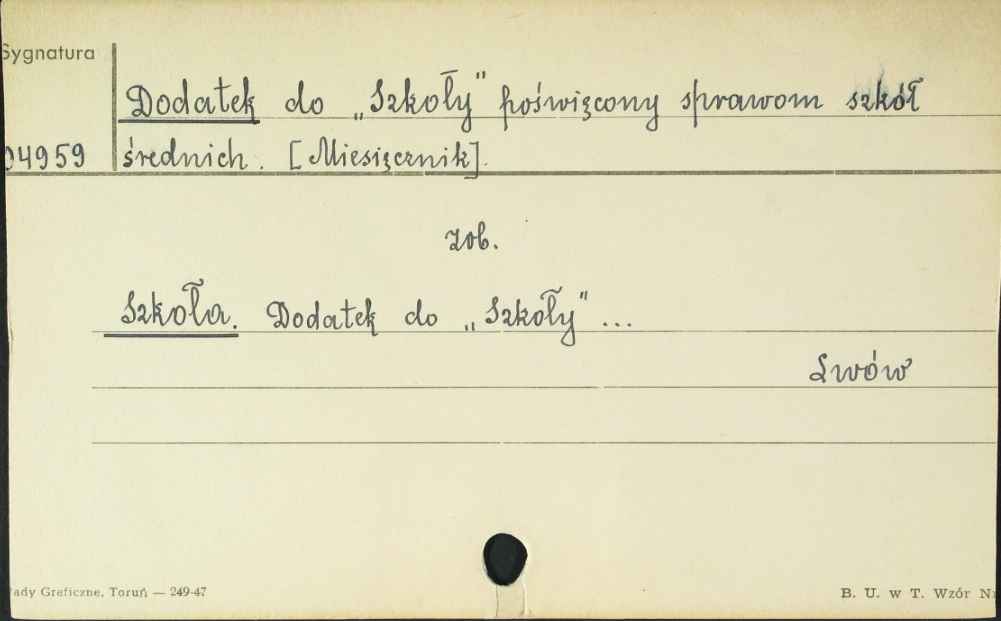 Sygnatura
Dodatek do „Szkoły" poświęcony sprawom szkół
04959 średnich. [Miesięcznik].
zob.
Szkoła. Dodatek do „Szkoły" ...
Lwów
ady Graficzne, Toruń — 249-47
B. U. w T. Wzór N